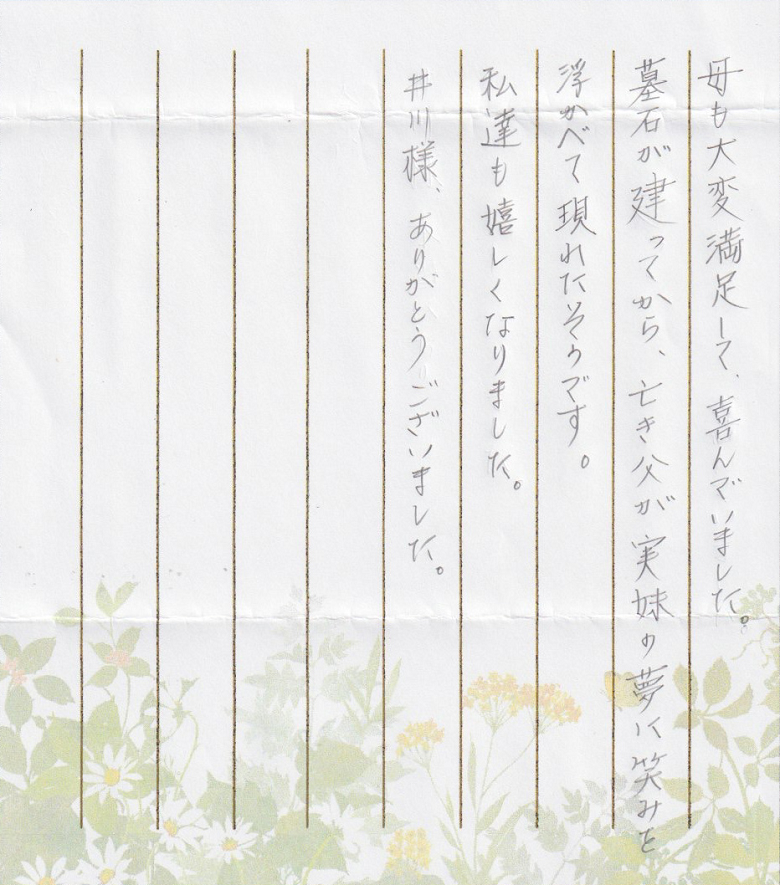 母も大変満足して、喜んでいました。
墓石が建ってから、亡き父が実妹の夢に笑みを
浮かべて現れたそうです。
私達も嬉しくなりました。
井川様、ありがとうございました。